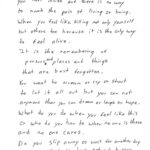 to numb the pain of living or being.
When you feel like killing not only yourself
but others too because it is the only way
to feel alive.
It is the remembering of
persons and places and things
that are best forgotten.
You want to scream or cry or shout
to let it all out but you can not
anymore than you can dream or laugh or hope.
What do you do when you feel like this
Or who do you turn to when no one is there
and no one cares.
Do you slip away or wait for another day